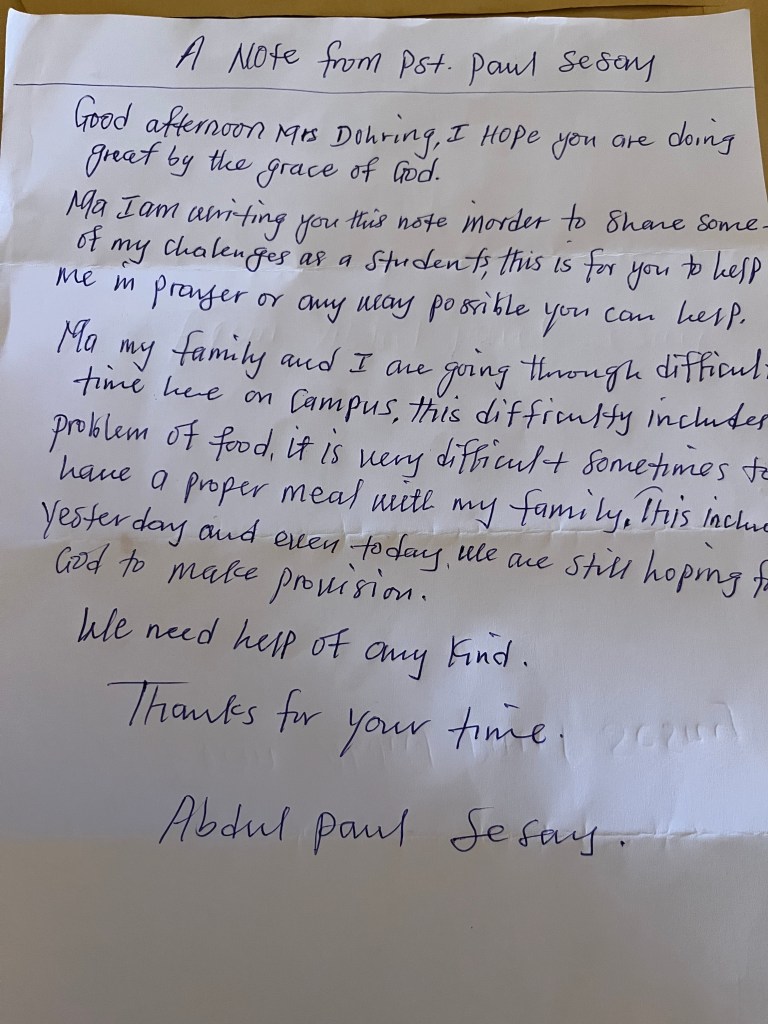 A Note from Pst. Paul Sesay
Good afternoon Mrs Dohring, I Hope you are doing
great by the grace of God.
Ma I am writing you this note inorder to Share Some-
of my chalenges as a Students, this is for you to help
me in prayer or any way possible you can help.
Ma my family and I are going through difficult
time here on Campus, this difficulty includes
problem of food, it is very difficult Sometimes to
have a proper meal with my family. This inclu
Yesterday and even today, We are Still hoping f
God to make provision.
We need help of any Kind.
Thanks for your time.
Abdul Paul Sesay.